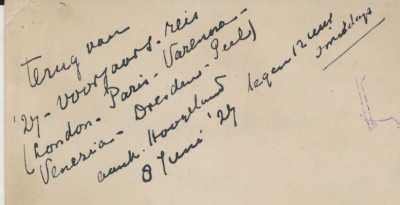 terug van
'27- voorjaars-reis
(London- Paris- Varenna-
Venezia- Dresden- Peels)
aank. Hoogeland tegen 12 uur
's middags
8 Juni '27